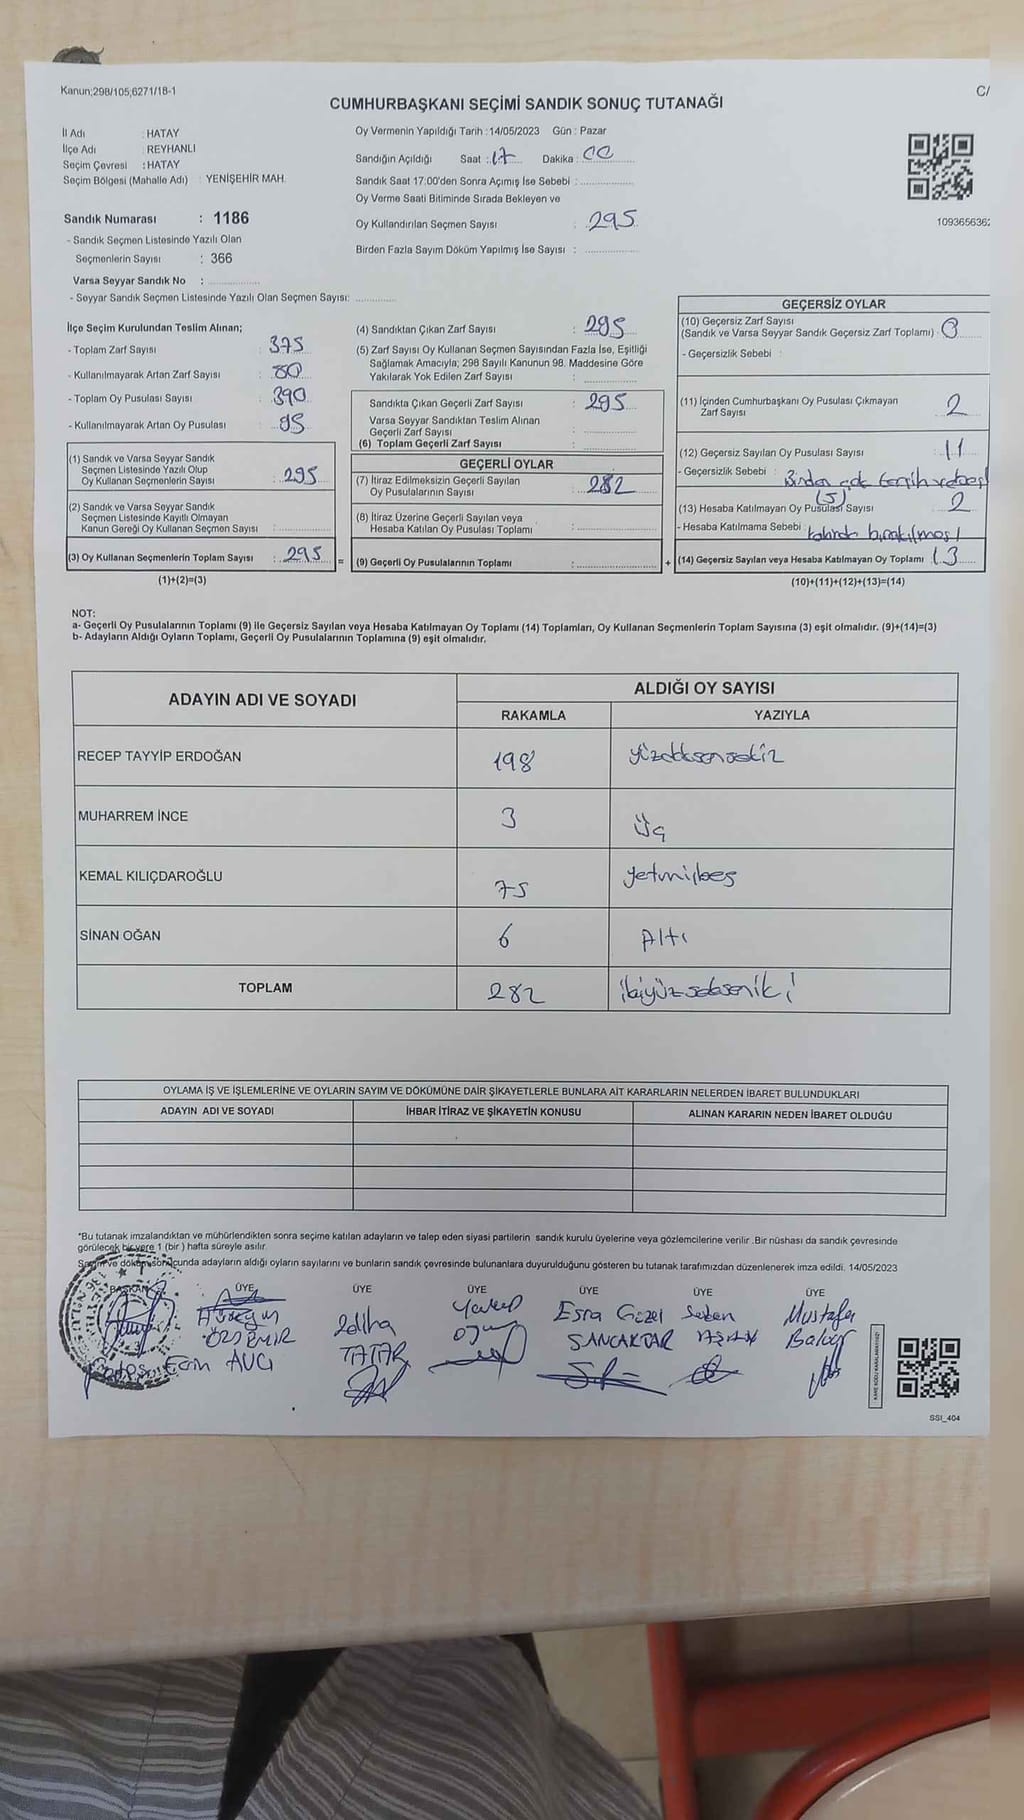 Kanun;298/105;6271/18-1
C/
CUMHURBAŞKANI SEÇİMİ SANDIK SONUÇ TUTANAĞI
İl Adı : HATAY
İlçe Adı : REYHANLI
Seçim Çevresi : HATAY
Seçim Bölgesi (Mahalle Adı) : YENİŞEHİR MAH.
Sandık Numarası : 1186
- Sandık Seçmen Listesinde Yazılı Olan
Seçmenlerin Sayısı : 366
Varsa Seyyar Sandık No :
- Seyyar Sandık Seçmen Listesinde Yazılı Olan Seçmen Sayısı:
Oy Vermenin Yapıldığı Tarih : 14/05/2023 Gün : Pazar
Sandığın Açıldığı Saat : 17 Dakika : 00
Sandık Saat 17:00'den Sonra Açımış İse Sebebi :
Oy Verme Saati Bitiminde Sırada Bekleyen ve
Oy Kullandırılan Seçmen Sayısı : 295
Birden Fazla Sayım Döküm Yapılmış İse Sayısı :
109365636
İlçe Seçim Kurulundan Teslim Alınan;
- Toplam Zarf Sayısı : 375
- Kullanılmayarak Artan Zarf Sayısı : 80
- Toplam Oy Pusulası Sayısı : 390
- Kullanılmayarak Artan Oy Pusulası : 95
(1) Sandık ve Varsa Seyyar Sandık
Seçmen Listesinde Yazılı Olup
Oy Kullanan Seçmenlerin Sayısı : 295
(2) Sandık ve Varsa Seyyar Sandık
Seçmen Listesinde Kayıtlı Olmayan
Kanun Gereği Oy Kullanan Seçmen Sayısı :
(3) Oy Kullanan Seçmenlerin Toplam Sayısı : 295 =
(1)+(2)=(3)
(4) Sandıktan Çıkan Zarf Sayısı : 295
(5) Zarf Sayısı Oy Kullanan Seçmen Sayısından Fazla İse, Eşitliği
Sağlamak Amacıyla; 298 Sayılı Kanunun 98. Maddesine Göre
Yakılarak Yok Edilen Zarf Sayısı :
Sandıkta Çıkan Geçerli Zarf Sayısı : 295
Varsa Seyyar Sandıktan Teslim Alınan
Geçerli Zarf Sayısı :
(6) Toplam Geçerli Zarf Sayısı :
GEÇERLİ OYLAR
(7) İtiraz Edilmeksizin Geçerli Sayılan
Oy Pusulalarının Sayısı : 282
(8) İtiraz Üzerine Geçerli Sayılan veya
Hesaba Katılan Oy Pusulası Toplamı :
(9) Geçerli Oy Pusulalarının Toplamı : +
GEÇERSİZ OYLAR
(10) Geçersiz Zarf Sayısı
(Sandık ve Varsa Seyyar Sandık Geçersiz Zarf Toplamı) : 0
- Geçersizlik Sebebi :
(11) İçinden Cumhurbaşkanı Oy Pusulası Çıkmayan
Zarf Sayısı : 2
(12) Geçersiz Sayılan Oy Pusulası Sayısı : 11
- Geçersizlik Sebebi : Birden çok tercih
(5)
(13) Hesaba Katılmayan Oy Pusulası Sayısı : 2
- Hesaba Katılmama Sebebi :
(14) Geçersiz Sayılan veya Hesaba Katılmayan Oy Toplamı : 13
(10)+(11)+(12)+(13)=(14)
NOT:
a- Geçerli Oy Pusulalarının Toplamı (9) ile Geçersiz Sayılan veya Hesaba Katılmayan Oy Toplamı (14) Toplamları, Oy Kullanan Seçmenlerin Toplam Sayısına (3) eşit olmalıdır. (9)+(14)=(3)
b- Adayların Aldığı Oyların Toplamı, Geçerli Oy Pusulalarının Toplamına (9) eşit olmalıdır.
ADAYIN ADI VE SOYADI
ALDIĞI OY SAYISI
RAKAMLA YAZIYLA
RECEP TAYYİP ERDOĞAN 198 yüzdoksansekiz
MUHARREM İNCE 3 üç
KEMAL KILIÇDAROĞLU 75 yetmişbeş
SİNAN OĞAN 6 Altı
TOPLAM 282 ikiyüzsekseniki
OYLAMA İŞ VE İŞLEMLERİNE VE OYLARIN SAYIM VE DÖKÜMÜNE DAİR ŞİKAYETLERLE BUNLARA AİT KARARLARIN NELERDEN İBARET BULUNDUKLARI
ADAYIN ADI VE SOYADI İHBAR İTİRAZ VE ŞİKAYETİN KONUSU ALINAN KARARIN NEDEN İBARET OLDUĞU
*Bu tutanak imzalandıktan ve mühürlendikten sonra seçime katılan adayların ve talep eden siyasi partilerin sandık kurulu üyelerine veya gözlemcilerine verilir .Bir nüshası da sandık çevresinde
görülecek bir yere 1 (bir ) hafta süreyle asılır.
Sayım ve döküm sonucunda adayların aldığı oyların sayılarını ve bunların sandık çevresinde bulunanlara duyurulduğunu gösteren bu tutanak tarafımızdan düzenlenerek imza edildi. 14/05/2023
BAŞKAN ÜYE ÜYE ÜYE ÜYE ÜYE ÜYE
ÖZDEMİR
Ecrin AVCI
Zeliha
TATAR
Yakup
Esra Güzel
SANCAKTAR
Mustafa
SSI_404